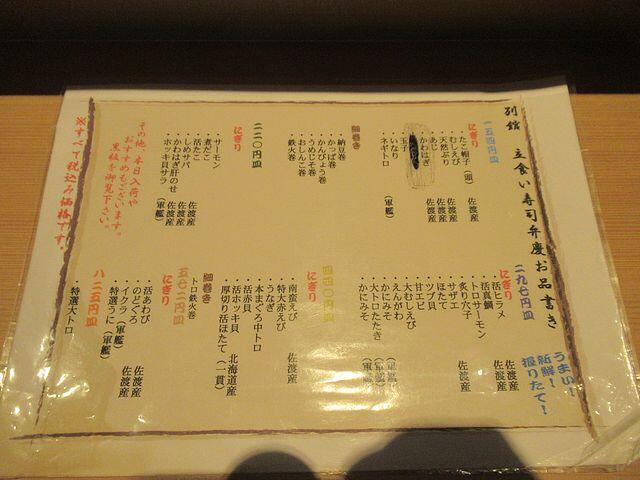 別館 立食い寿司弁慶お品書き
うまい!
新鮮!
握りたて!
一五四円皿
にぎり
・たこ帽子(頭) 佐渡産
・むしえび
・天然ぶり 佐渡産
・あじ 佐渡産
・かわはぎ 佐渡産
・玉子
・いなり
・ネギトロ (軍艦)
細巻き
・納豆巻
・かっぱ巻
・かんぴょう巻
・うめじそ巻
・おしんこ巻
・鉄火巻
二二〇円皿
にぎり
・サーモン
・煮だこ
・活たこ 佐渡産
・しめサバ 佐渡産
・かわはぎ肝のせ 佐渡産
・ホッキ貝サラ (軍艦)
その他、本日入荷や
おすすめもございます。
黒板を御覧下さい。
※すべて税込み価格です。
二九七円皿
にぎり
・活ヒラメ 佐渡産
・活真鯛 佐渡産
・トロサーモン
・炙り穴子 佐渡産
・サザエ
・ほたて
・ツブ貝
・甘エビ
・大むしえび
・えんがわ
・かにみそ (軍艦)
・大トロたたき (軍艦)
・かにみそ (軍艦)
四四〇円皿
にぎり
・南蛮えび 佐渡産
・特大赤えび
・うなぎ
・本まぐろ中トロ
・活赤貝
・活ホッキ貝 北海道産
・厚切り活ほたて(一貫)
細巻き
・トロ鉄火巻
五七二円皿
にぎり
・活あわび 佐渡産
・のどぐろ 佐渡産
・イクラ(軍艦) 佐渡産
・特選うに(軍艦)
八二五円皿
・特選大トロ